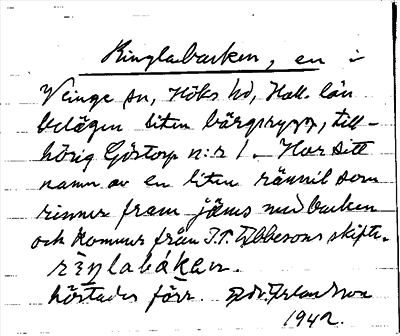 Ringlabacken, en i
Veinge sn, Höks hd, Hall. län
belägen liten bärgrygg, till-
hörig Göstorp n:r 1. Har sitt
namn av en liten rännil som
rinner fram jäms med backen
och kommer från J.P. Ebbesons skifte.
riŋlabakan.
hörtades förr.
1942.